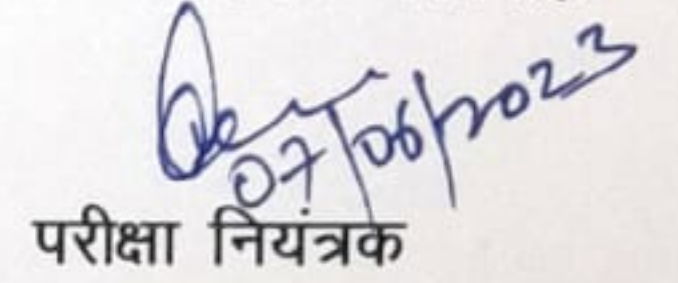 07/06/2023
परीक्षा नियंत्रक